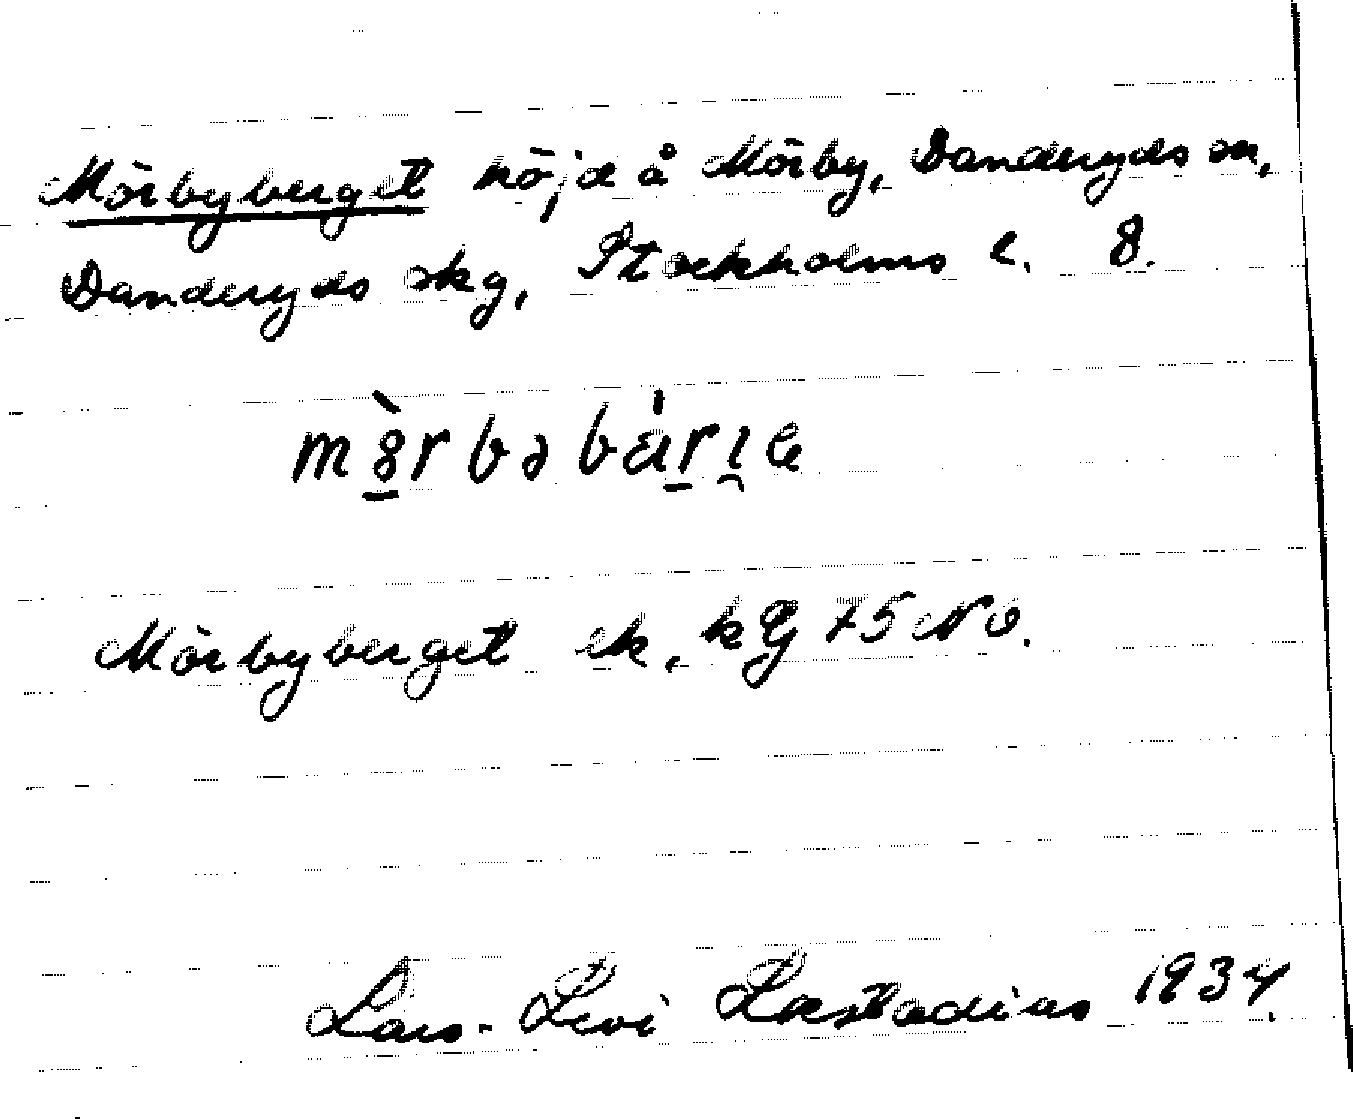 Mörbyberget höjd å Mörby, Danderyds sn,
Danderyds skg, Stockholms l. 8.
Mörbyberget ek. kg 75 NO.
Lars-Levi Læstadius 1934.